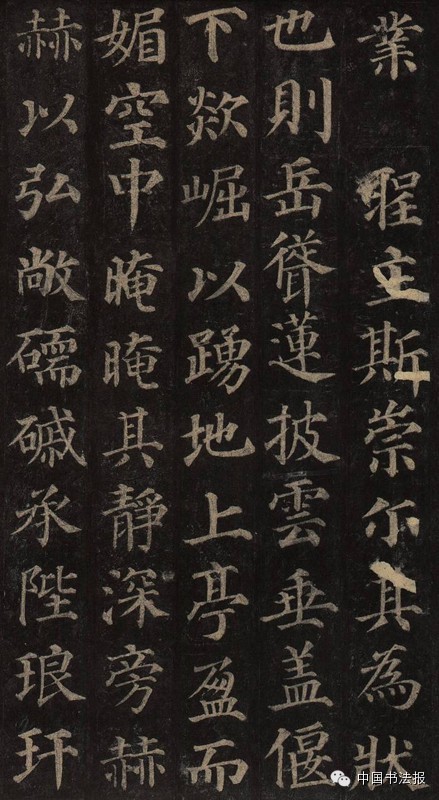 業　聖主斯崇尔其為狀
也則岳聳蓮披雲垂盖偃
下欻崛以踴地上亭盈而
媚空中晻晻其靜深旁赫
赫以弘敞礝磩承陛琅玕
中国书法报